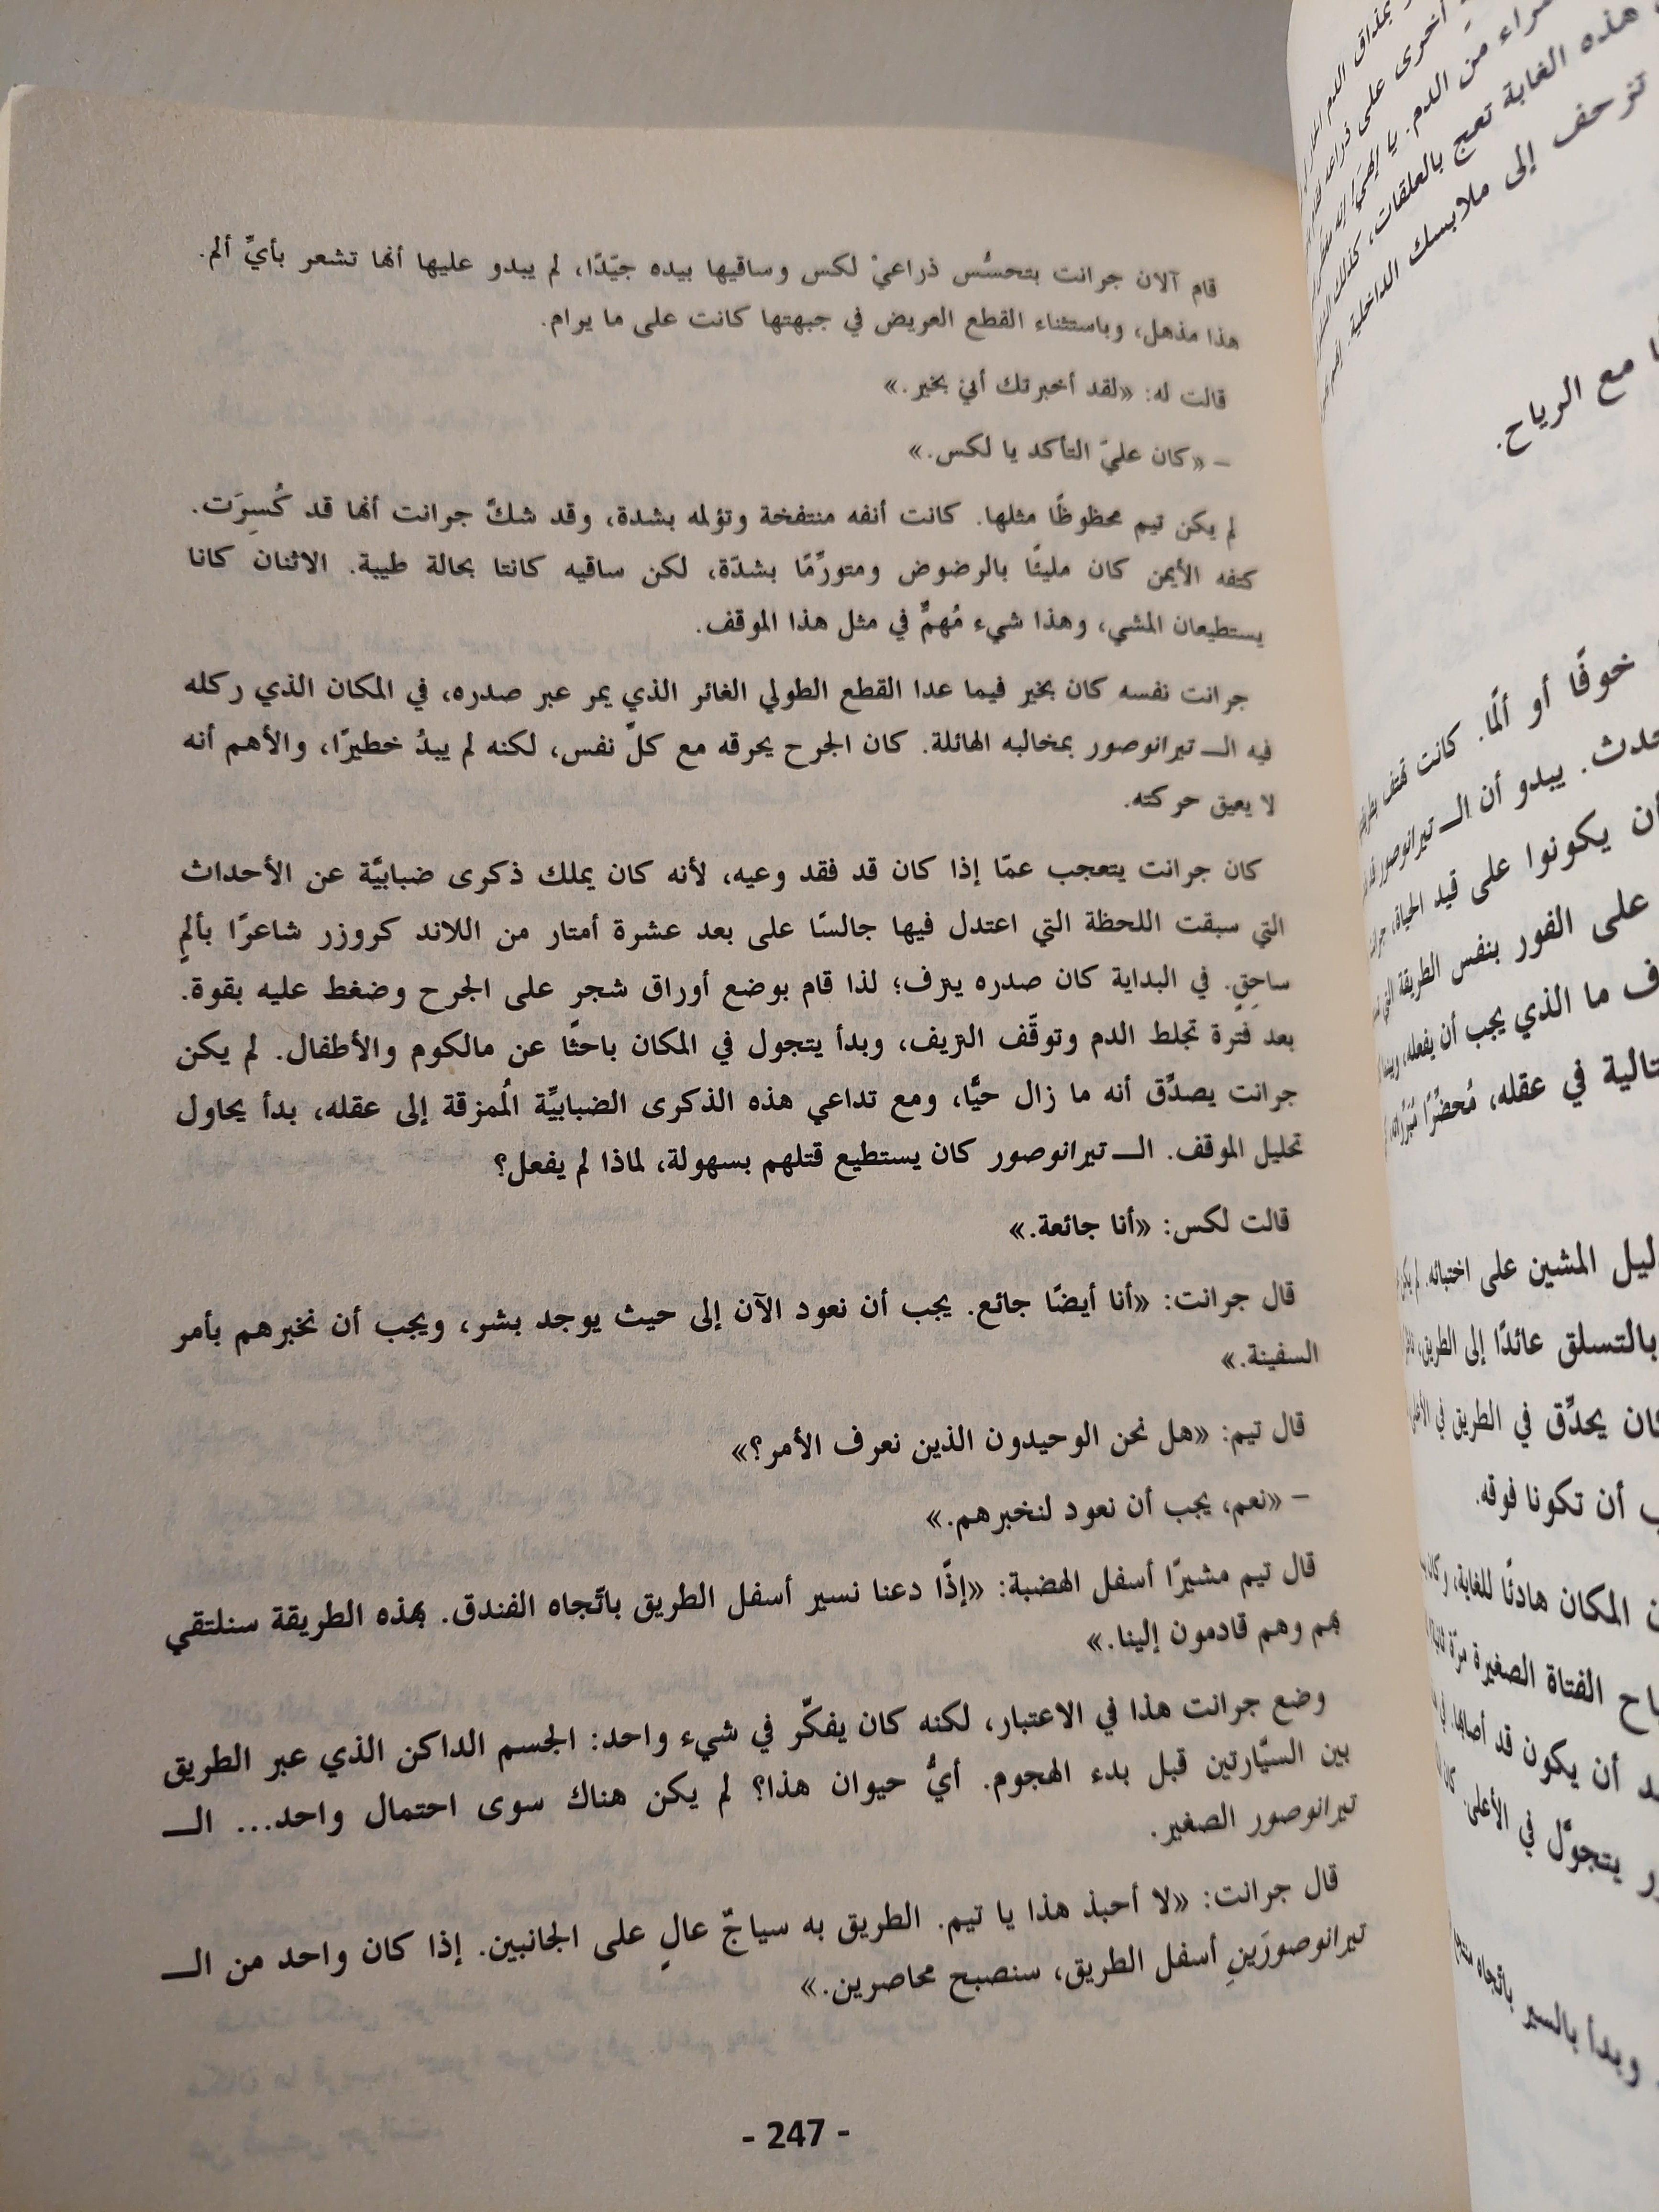 قام آلان جرانت بتحسُّس ذراعيْ لكس وساقيها بيده جيّدًا، لم يبدو عليها أنها تشعر بأيِّ ألم.
هذا مذهل، وباستثناء القطع العريض في جبهتها كانت على ما يرام.
قالت له: «لقد أخبرتك أني بخير.»
– «كان عليّ التأكد يا لكس.»
لم يكن تيم محظوظًا مثلها. كانت أنفه منتفخة وتؤلمه بشدة، وقد شكّ جرانت أنها قد كُسِرَت.
كتفه الأيمن كان مليئًا بالرضوض ومتورِّمًا بشدّة، لكن ساقيه كانتا بحالة طيبة. الاثنان كانا
يستطيعان المشي، وهذا شيء مُهمٌّ في مثل هذا الموقف.
جرانت نفسه كان بخير فيما عدا القطع الطولي الغائر الذي يمر عبر صدره، في المكان الذي ركله
فيه الـ تيرانوصور بمخالبه الهائلة. كان الجرح يحرقه مع كلّ نفس، لكنه لم يبدُ خطيرًا، والأهم أنه
لا يعيق حركته.
كان جرانت يتعجب عمّا إذا كان قد فقد وعيه، لأنه كان يملك ذكرى ضبابيَّة عن الأحداث
التي سبقت اللحظة التي اعتدل فيها جالسًا على بعد عشرة أمتار من اللاند كروزر شاعرًا بألمٍ
ساحِقٍ. في البداية كان صدره ينزف؛ لذا قام بوضع أوراق شجرٍ على الجرح وضغط عليه بقوة.
بعد فترة تجلط الدم وتوقَّف النزيف، وبدأ يتجول في المكان باحثًا عن مالكوم والأطفال. لم يكن
جرانت يصدِّق أنه ما زال حيًّا، ومع تداعي هذه الذكرى الضبابيِّة المُمزقة إلى عقله، بدأ يحاول
تحليل الموقف. الـ تيرانوصور كان يستطيع قتلهم بسهولة، لماذا لم يفعل؟
قالت لكس: «أنا جائعة.»
قال جرانت: «أنا أيضًا جائع. يجب أن نعود الآن إلى حيث يوجد بشر، ويجب أن نخبرهم بأمر
السفينة.»
قال تيم: «هل نحن الوحيدون الذين نعرف الأمر؟»
– «نعم، يجب أن نعود لنخبرهم.»
قال تيم مشيرًا أسفل الهضبة: «إذًا دعنا نسير أسفل الطريق باتّجاه الفندق. بهذه الطريقة سنلتقي
بهم وهم قادمون إلينا.»
وضع جرانت هذا في الاعتبار، لكنه كان يفكّر في شيء واحد: الجسم الداكن الذي عبر الطريق
بين السيّارتين قبل بدء الهجوم. أيُّ حيوان هذا؟ لم يكن هناك سوى احتمال واحد... الـ
تيرانوصور الصغير.
قال جرانت: «لا أحبذ هذا يا تيم. الطريق به سياجٌ عالٍ على الجانبين. إذا كان واحد من الـ
تيرانوصورَينِ أسفل الطريق، سنصبح محاصرين.»
- 247 -
بمذاق الدم
أخرى على ذراعه
من الدم. يا إلهي! إنه
هذه الغابة تعج بالعلقات، كذلك
تزحف إلى ملابسك الداخلية.
مع الرياح.
خوفًا أو ألمًا. كانت تهتف
يبدو أن الـ تيرانوصور
يكونوا على قيد الحياة،
على الفور بنفس الطريقة التي
ما الذي يجب أن يفعله،
في عقله، مُحضِّرًا
المشين على اختبائه. لم
بالتسلق عائدًا إلى الطريق،
يحدِّق في الطريق في
أن تكونا فوقه.
المكان هادئًا للغاية،
الفتاة الصغيرة مرّة
أن يكون قد أصابها.
يتجوَّل في الأعلى.
وبدأ بالسير باتّجاه